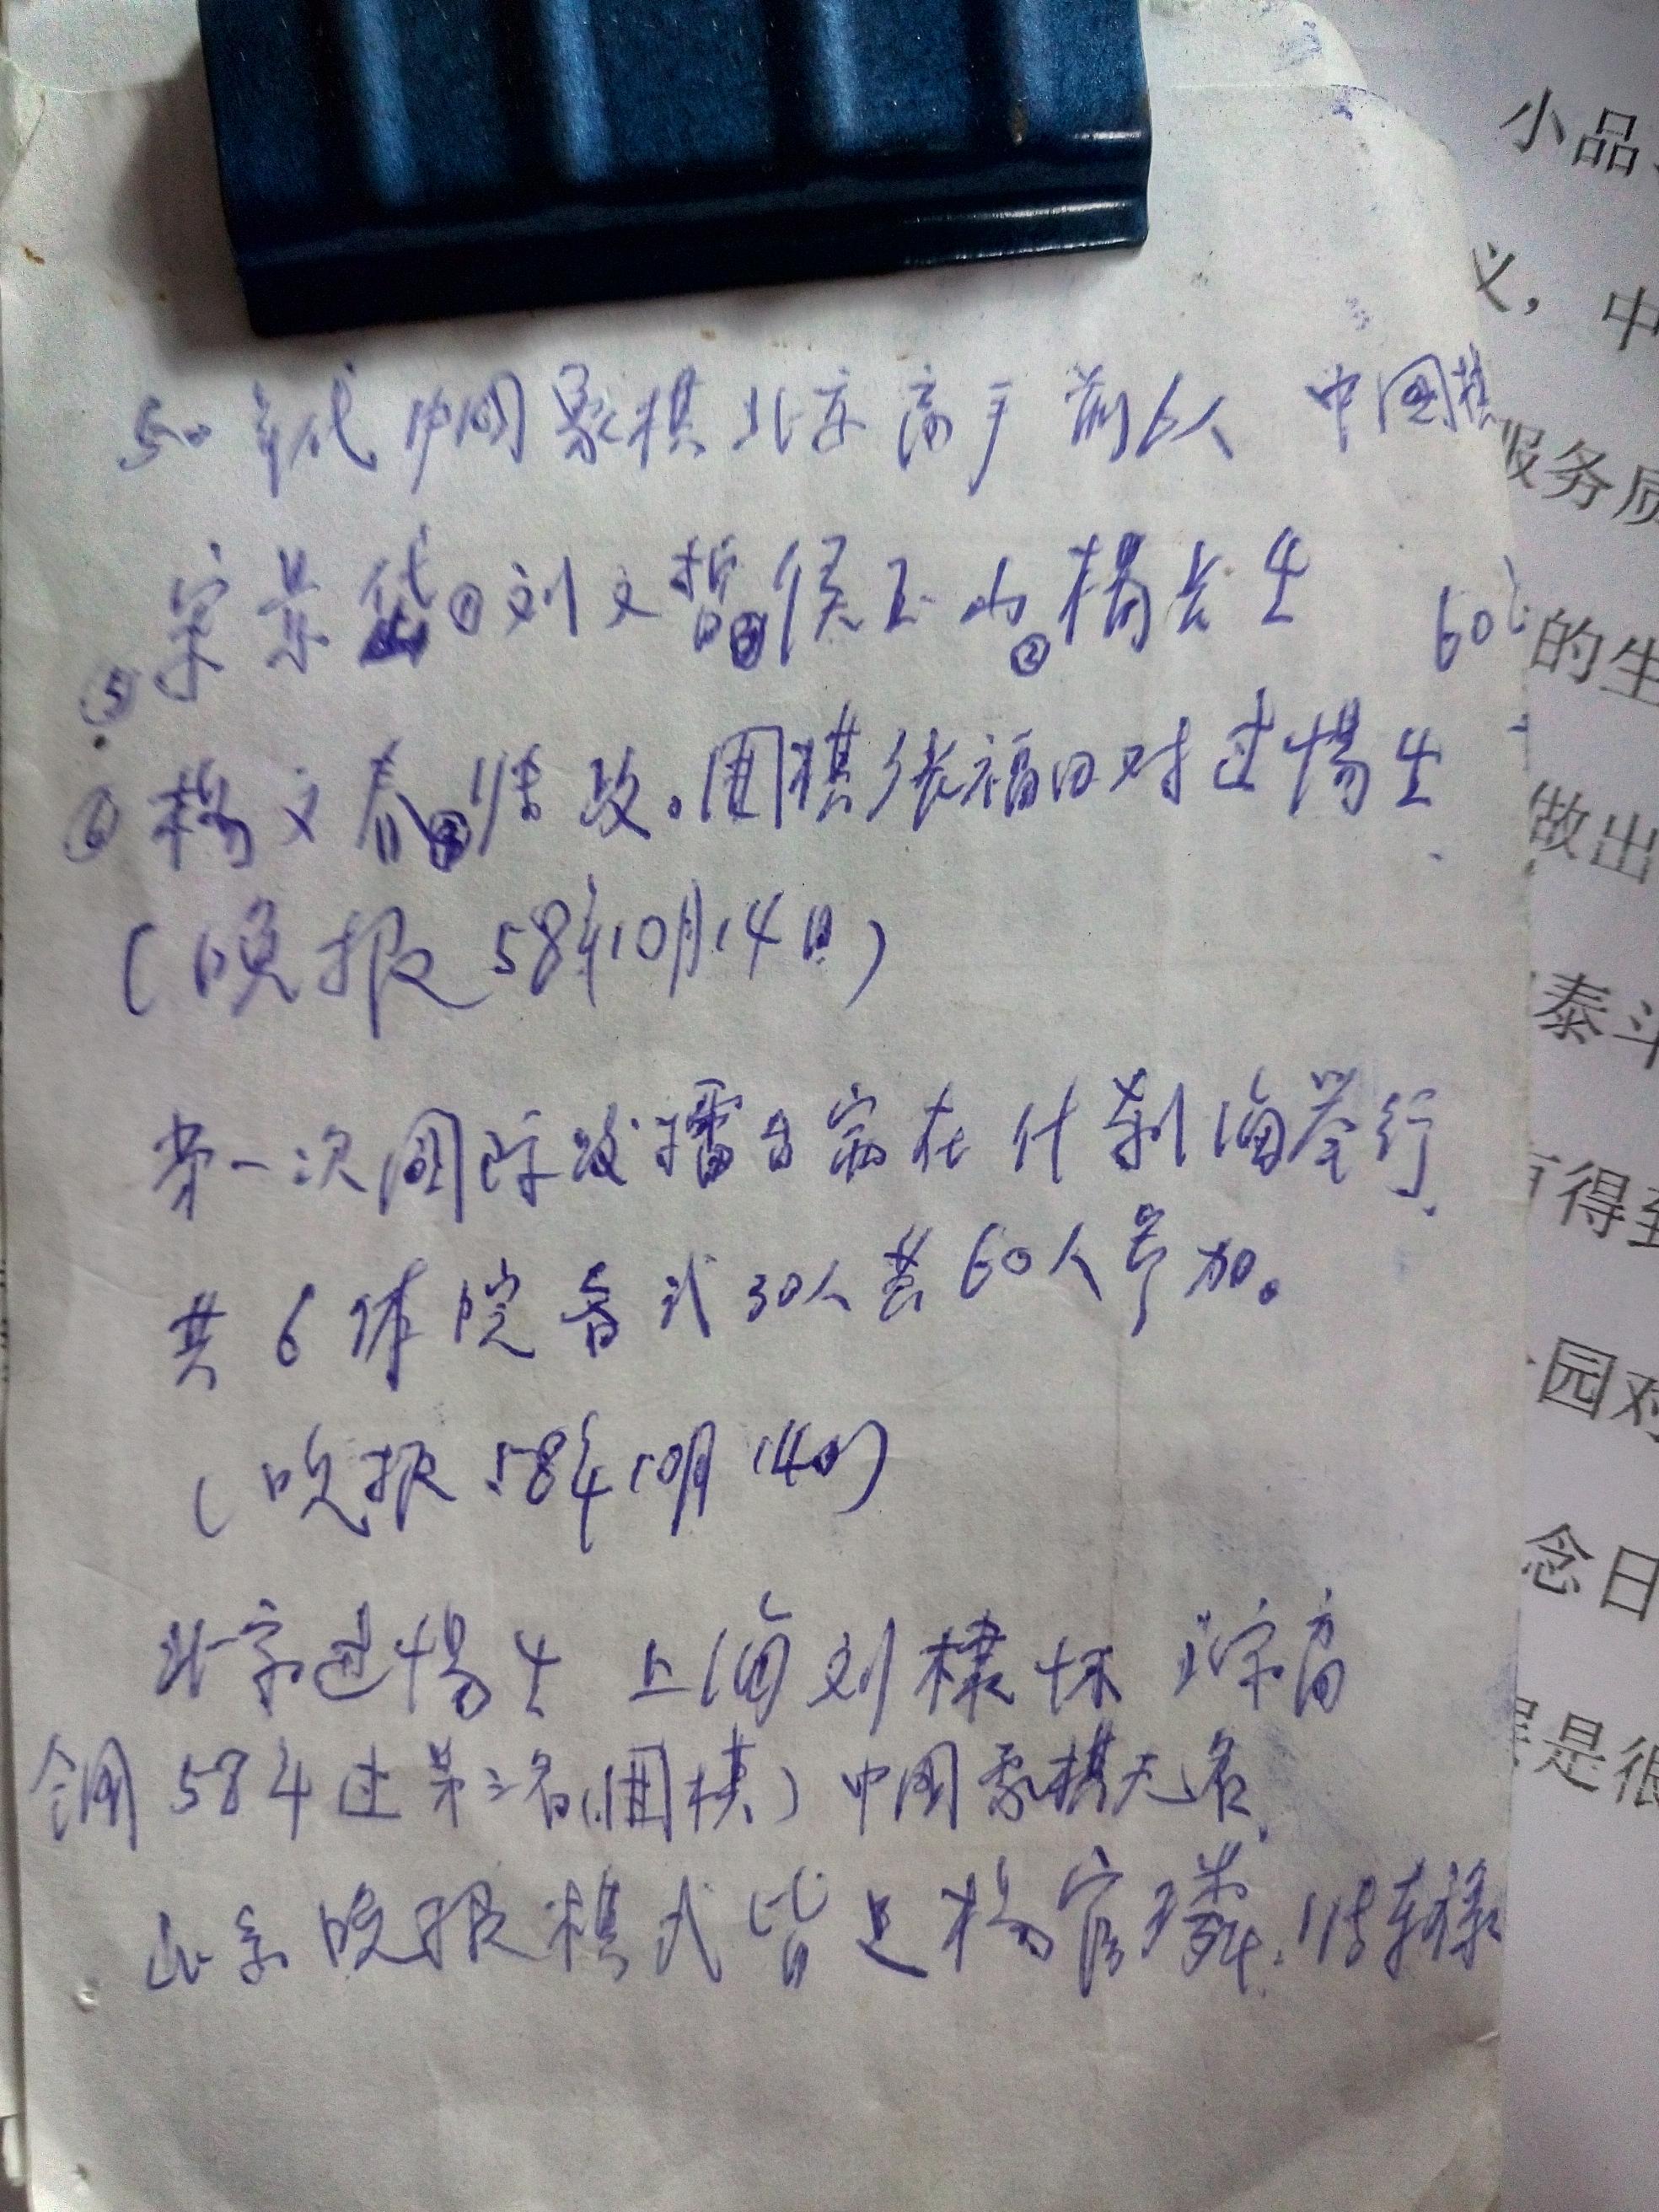 50年代中国象棋北京高手前6人 中国棋
⑤宋景岱①刘文哲③侯玉山②杨长生 60
⑥杨文春④傅 政。围棋张福田对过惕生.
(晚报58年10月14日)
第一次国际 擂台赛在什刹海举行.
共6体院各式30人共60人参加。
(晚报58年10月14日)
北京过惕生 上海刘棣怀
全国58年过第二名(围棋)中国象棋无名.
北京晚报棋式皆是杨官璘.
小品
义，中
服务质
的生
做出
泰斗
得到
园对
念日
是很